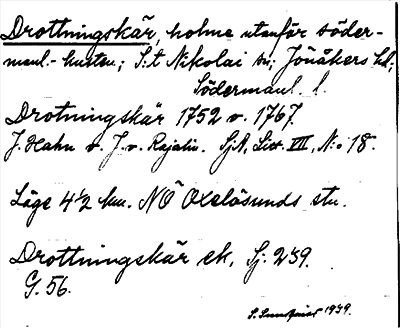 Drottningskär, holme utanför söder-
manl.-kusten; S:t Nikolai sn; Jönåkers hd;
Södermanl. l.
Drotningskär 1752 o. 1767.
J. Hahn o. J. v. Rajalin. SjA, Litt. VII, N:o 18.
Läge 4½ km. NO Oxelösunds stn.
Drottningskär ek. Sj. 259.
G. 56.
S. 1939.